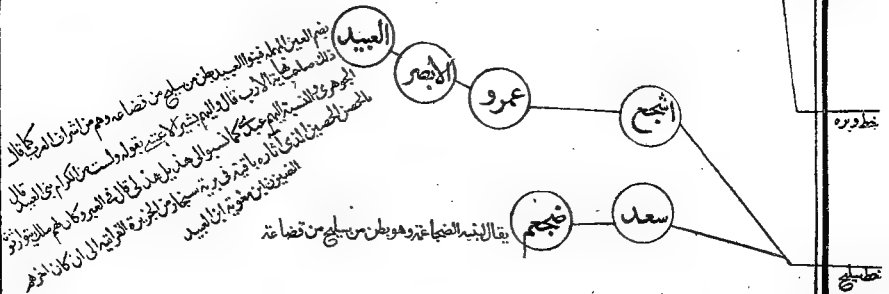 العبيد
الابصر
عمرو
اشجع
بضم العين المهملة فبنوا العبيد بطن من سليح من قضاعه وهم من اشراف العرب كما قال
ذلك صاحب نهاية الارب قال واليهم يشير الاعشى بقوله ولست من الكرام بنى العبيد قال
الجوهري والنسبة اليهم عبدى كما نسبوا الى هذيل هذلى قال في العبر وكان لهم ملك يتوارثونه
بالحضر الحصين الذى آثاره باقيه في برية سنجار من الجزيرة الفراتيه الى ان كان اخرهم
الضيزن ابن معوية ابن العبيد
خط وبره
سعد
ضجعم
يقال لبنيه الضجاعمة وهو بطن من سليح من قضاعة
خط سليح